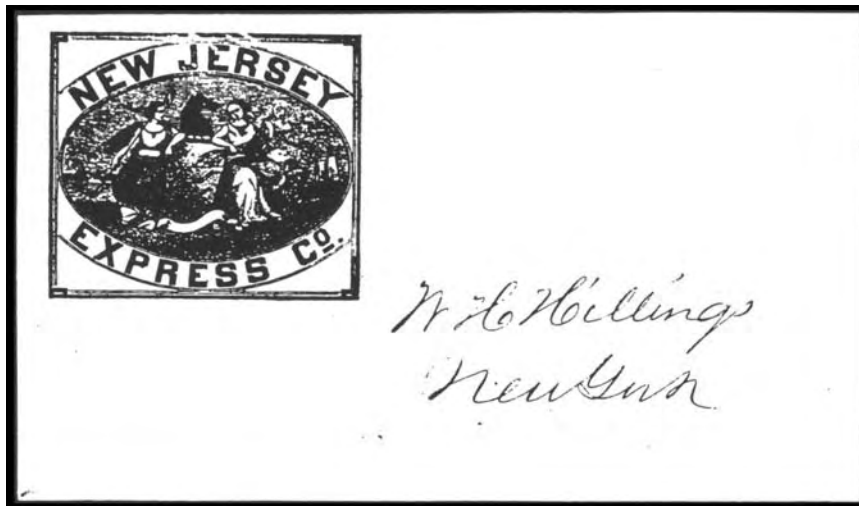 NEW JERSEY
EXPRESS Co.
W H Hillings
New York